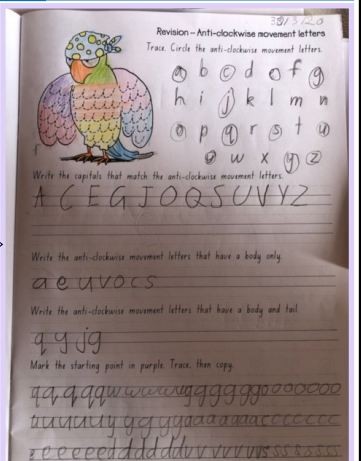 Revision – Anti-clockwise movement letters
Trace. Circle the anti-clockwise movement letters.
a b c d e f g
h i j k l m n
o p q r s t u
v w x y z
Write the capitals that match the anti-clockwise movement letters.
A C E G J O Q S U V Y Z
Write the anti-clockwise movement letters that have a body only.
a e u v o c s
Write the anti-clockwise movement letters that have a body and tail.
q y j g
Mark the starting point in purple. Trace, then copy.